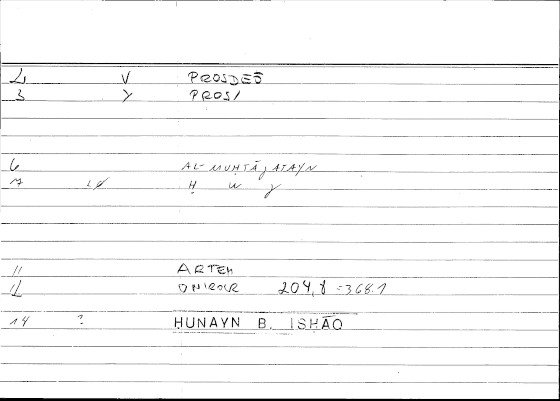 2 V PROSDEŌ
3 Y PROS/
6 AL-MUḤTĀJ ATAYN
7 1∅ Ḥ W Y
11 ARTEM
12 ONIROCR 204,8 = 368.1
14 ? HUNAYN B. ISḤĀQ